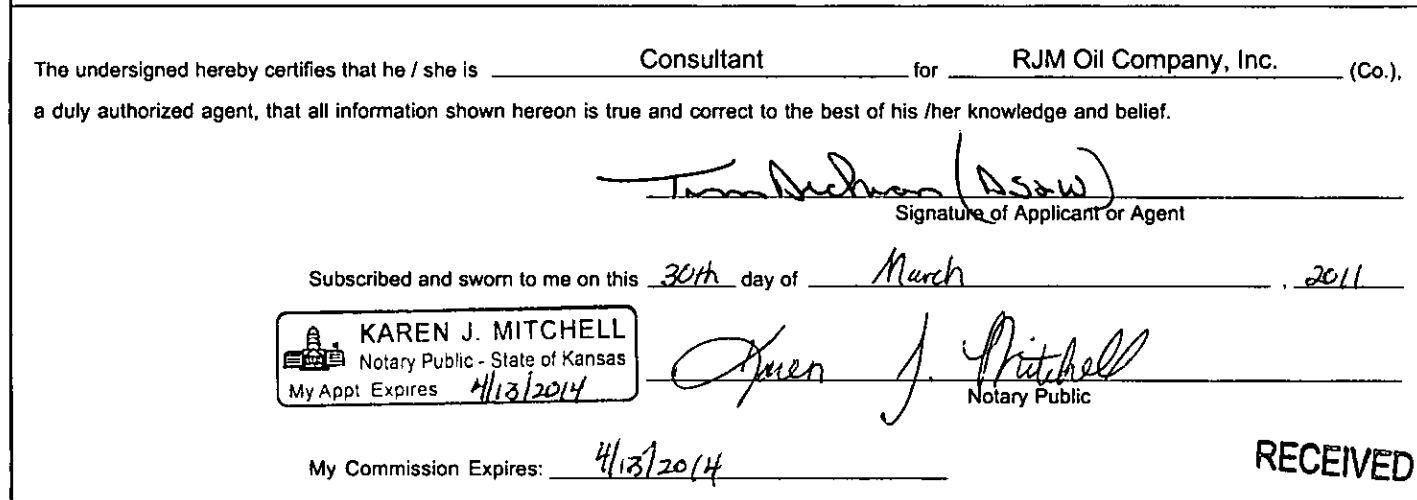 The undersigned hereby certifies that he / she is Consultant for RJM Oil Company, Inc. (Co.),
a duly authorized agent, that all information shown hereon is true and correct to the best of his /her knowledge and belief.
Signature of Applicant or Agent
Subscribed and sworn to me on this 30th day of March , 2011
KAREN J. MITCHELL
Notary Public - State of Kansas
My Appt Expires 4/13/2014
Karen J. Mitchell
Notary Public
My Commission Expires: 4/13/2014
RECEIVED